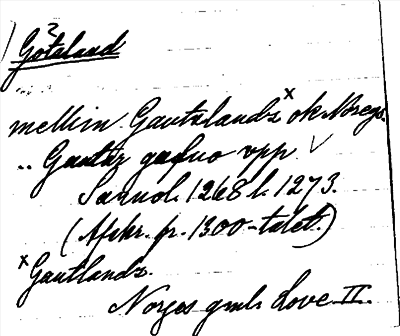 Götaland
mellim Gautzlandz x ok Noregs.
.. Gautar gafuo vpp
Sannol. 1268 l. 1273.
(Afskr. fr. 1300-talet.)
x Gautlandz.
Norges gmls Love II.